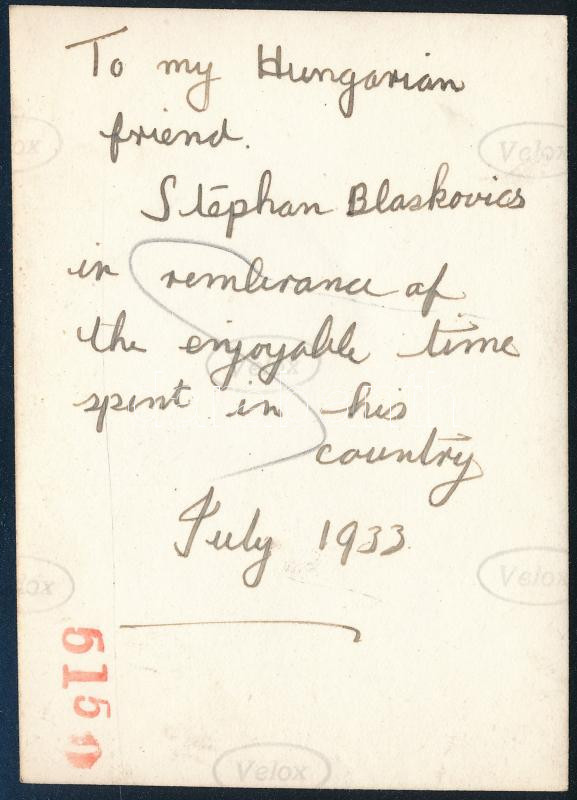 To my Hungarian
friend.
Stephan Blaskovics
in rembrance of
the enjoyable time
spent in his
country
July 1933.
Velox
Velox
Velox
Velox
Velox
Velox